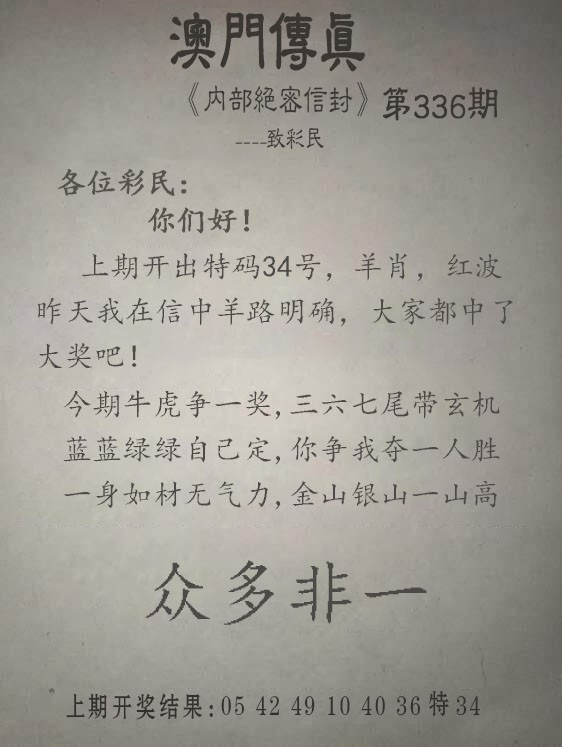 澳門傳真
《内部絕密信封》第336期
----致彩民
各位彩民:
你们好!
上期开出特码34号, 羊肖, 红波
昨天我在信中羊路明确, 大家都中了
大奖吧!
今期牛虎争一奖,三六七尾带玄机
蓝蓝绿绿自己定,你争我夺一人胜
一身如材无气力,金山银山一山高
众多非一
上期开奖结果:05 42 49 10 40 36 特 34